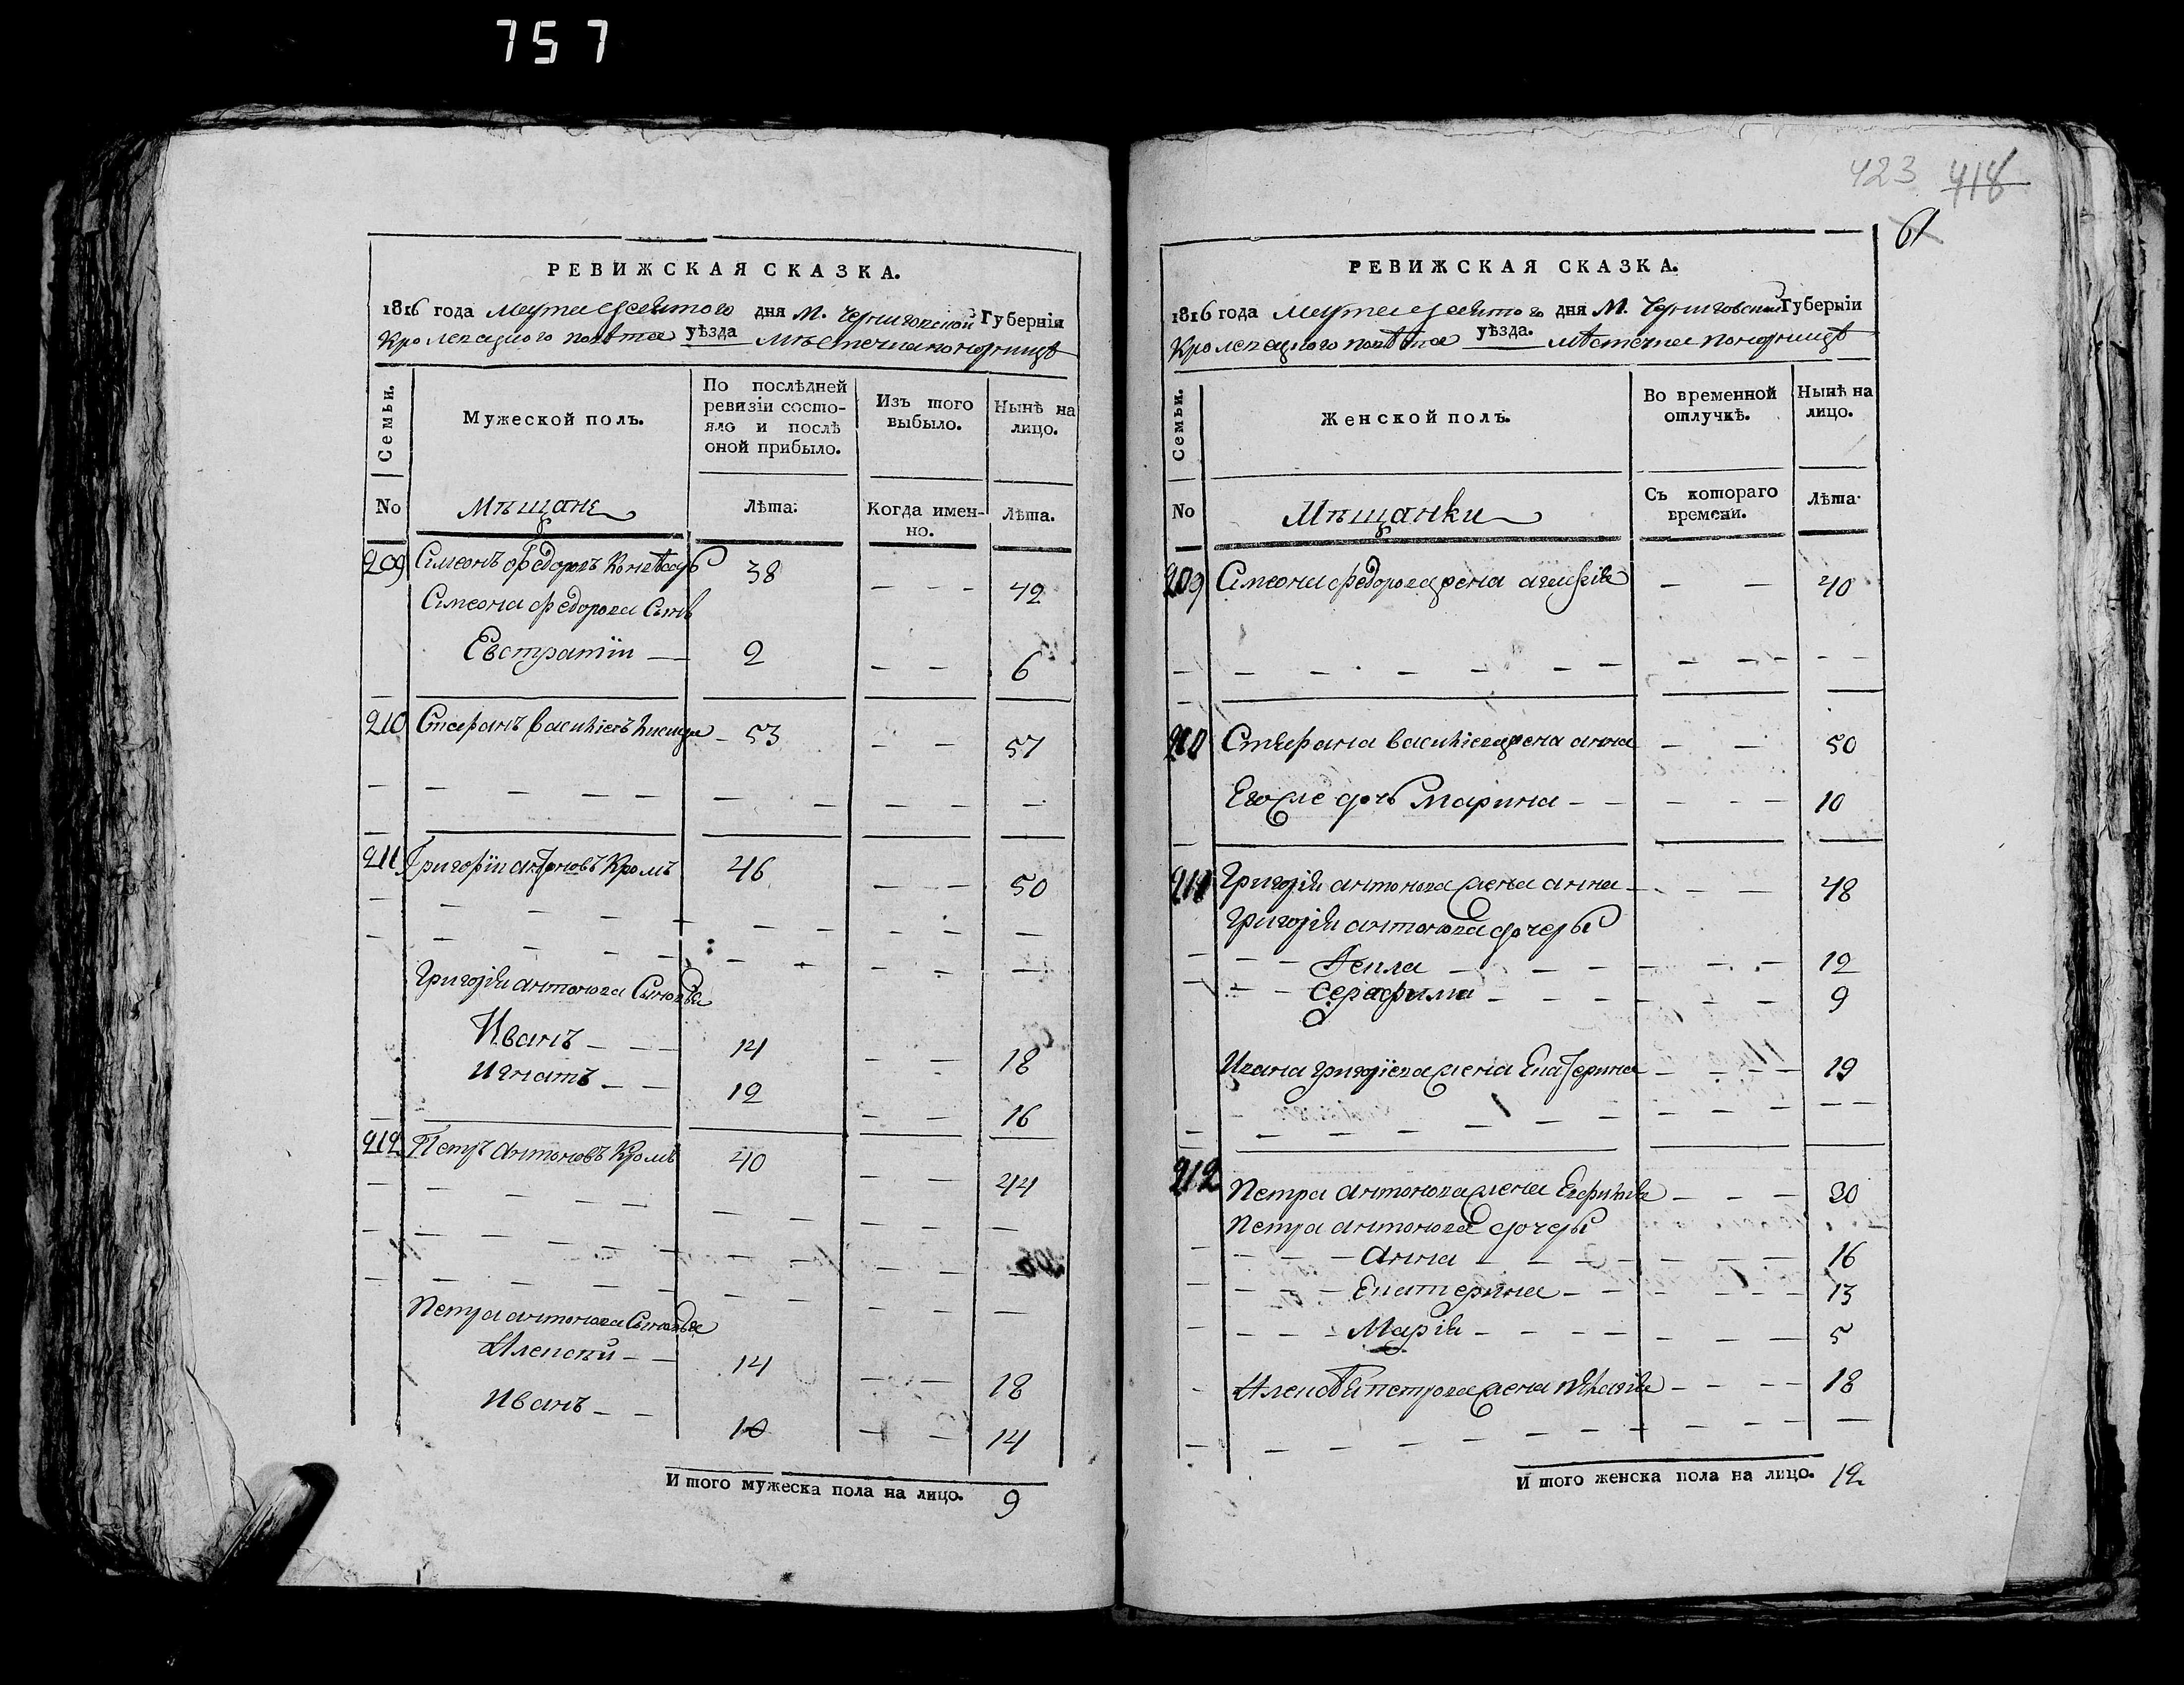 757
РЕВИЖСКАЯ СКАЗКА.
1816 года Марта десятого дня М. Черниговской Губернія
Кролевецкого повѣта уѣзда мѣстечка понорницѣ
Семьи.
Мужеской полъ.
По послѣдней ревизіи состо-
яло и послѣ оной прибыло.
Изъ того выбыло.
Нынѣ на лицо.
No
Мѣщане
Лѣта.
Когда имен-
но.
Лѣта.
209 Симеонъ федоровъ 38 — — — 42
Симеона федорова Сынъ
Евстратіи — 2 — — 6
210 Стефанъ василіевъ — 53 — — 57
211 Григоріи антоновъ Кромъ 46 — — — 50
Григорія антонова Сыновья
Иванъ — — — 14 — — 18
Игнатъ — — 12 — — 16
212 Петръ антоновъ Кромъ 40 — — 44
Петра антонова Сыновья
Алексѣй — — 14 — — 18
Иванъ — — 10 — — 14
И того мужеска пола на лицо. 9
423 418
61
РЕВИЖСКАЯ СКАЗКА.
1816 года Марта десятого дня М. Черниговской Губерніи
Кролевецкого повѣта уѣзда. мѣстечка понорницѣ
Семьи.
Женской полъ.
Во временной отлучкѣ.
Нынѣ на лицо.
No
Мѣщанки
Съ котораго времени.
Лѣта.
209 Симеона федорова жена — — 40
210 Стефана василіева жена анна — — 50
Егоже дочь Марина — — — — — 10
211 Григорія антонова жена анна — — — 48
Григорія антонова дочеры
— — Фекла — — — — — — — 12
— — Серафима — — — — — — — 9
Ивана григоріева жена Екатерина — — — — 19
212 Петра антонова жена — — — 30
Петра антонова дочеры
— — — анна — — — — — — — 16
— — — Екатерина — — — — — — 13
— — — Марія — — — — — — — 5
Алексѣя петрова жена — — — — 18
И того женска пола на лицо. 12